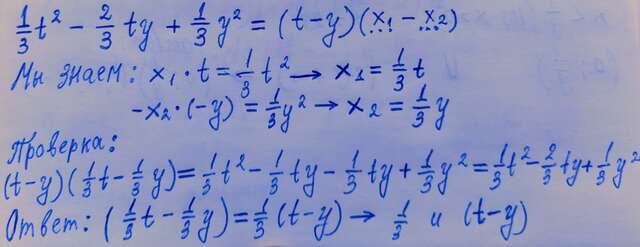 1/3 t² - 2/3 ty + 1/3 y² = (t-y)(x₁ - x₂)
Мы знаем: x₁ · t = 1/3 t² → x₁ = 1/3 t
-x₂ · (-y) = 1/3 y² → x₂ = 1/3 y
Проверка:
(t-y)(1/3 t - 1/3 y) = 1/3 t² - 1/3 ty - 1/3 ty + 1/3 y² = 1/3 t² - 2/3 ty + 1/3 y²
Ответ: (1/3 t - 1/3 y) = 1/3 (t-y) → 1/3 и (t-y)